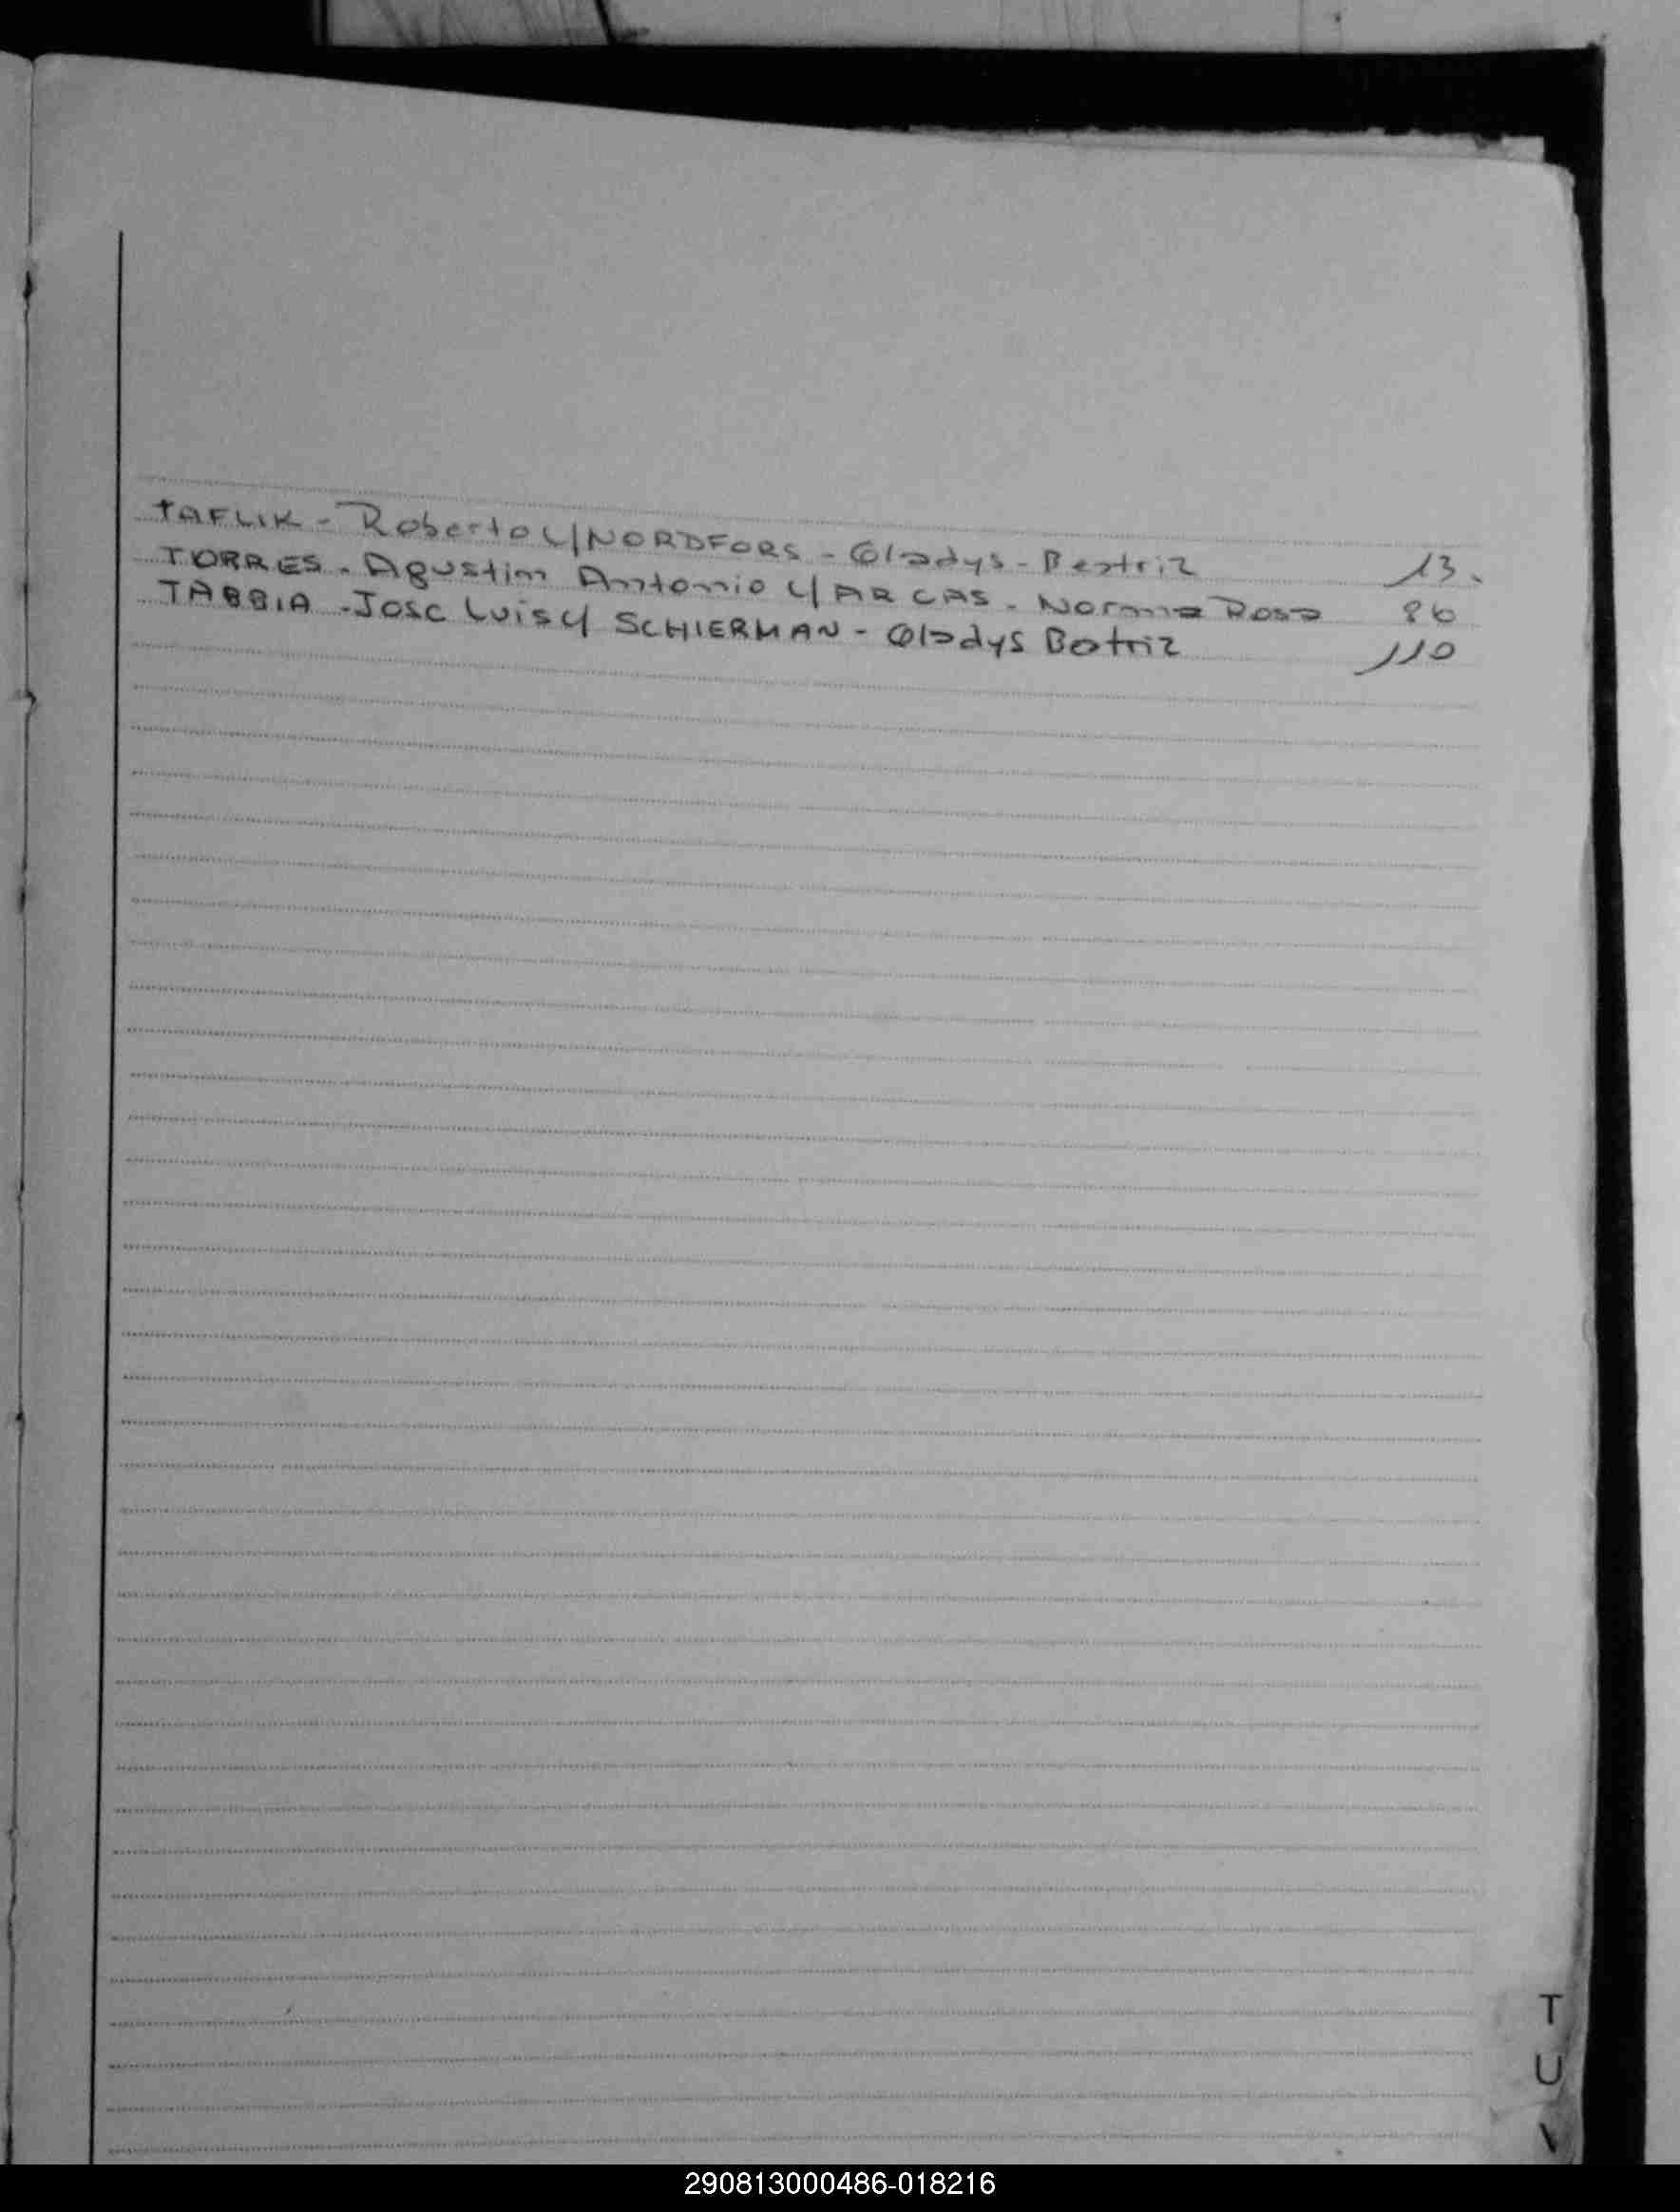 TAFLIK - Roberto C/NORDFORS - Gladys - Beatriz 13.
TORRES. Agustin Antonio C/ ARCAS. Norma Rosa 86
TABBIA - Jose Luis C/ SCHIERMAN - Gladys Batriz 110
T
U
V
290813000486-018216